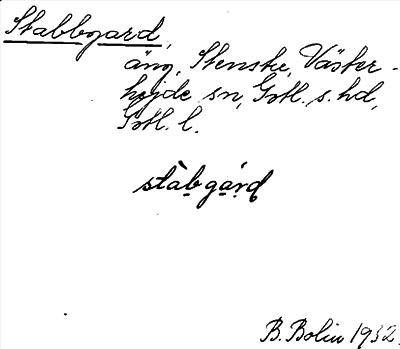 Stabbgard,
äng, Stenstu, Väster-
hejde sn, Gotl. s. hd,
Gotl. l.
stàbgárd
B. Bolin 1932.